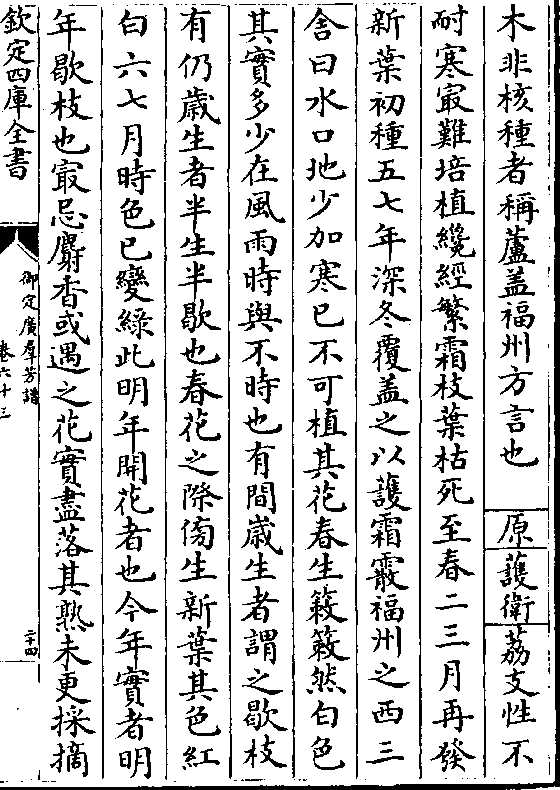 木非核種者稱蘆盖福州方言也 原 護衛 荔支性不
耐寒㝡難培植纔經繁霜枝葉枯死至春二三月再發
新葉初種五七年深冬覆盖之以護霜霰福州之西三
舍曰水口地少加寒已不可植其花春生簌簌然白色
其實多少在風雨時與不時也有間歲生者謂之歇枝
有仍歲生者半生半歇也春花之際傍生新葉其色紅
白六七月時色已變綠此明年開花者也今年實者明
年歇枝也㝡忌麝香或遇之花實盡落其熟未更採摘
欽定四庫全書
御定廣羣芳譜
卷六十三
二十四